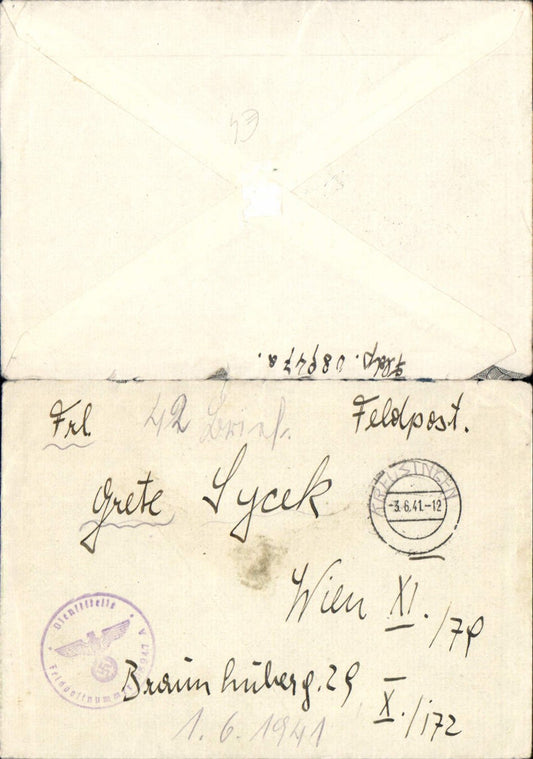 43
Feldp. 08947a.
Frl. 42 Brief. Feldpost.
Grete Sycek
KREUSINGEN
-3.6.41.-12
Wien XI./79
Dienststelle
Feldpostnummer 08947 A
Braunhuberg. 29
X./172
1.6.1941